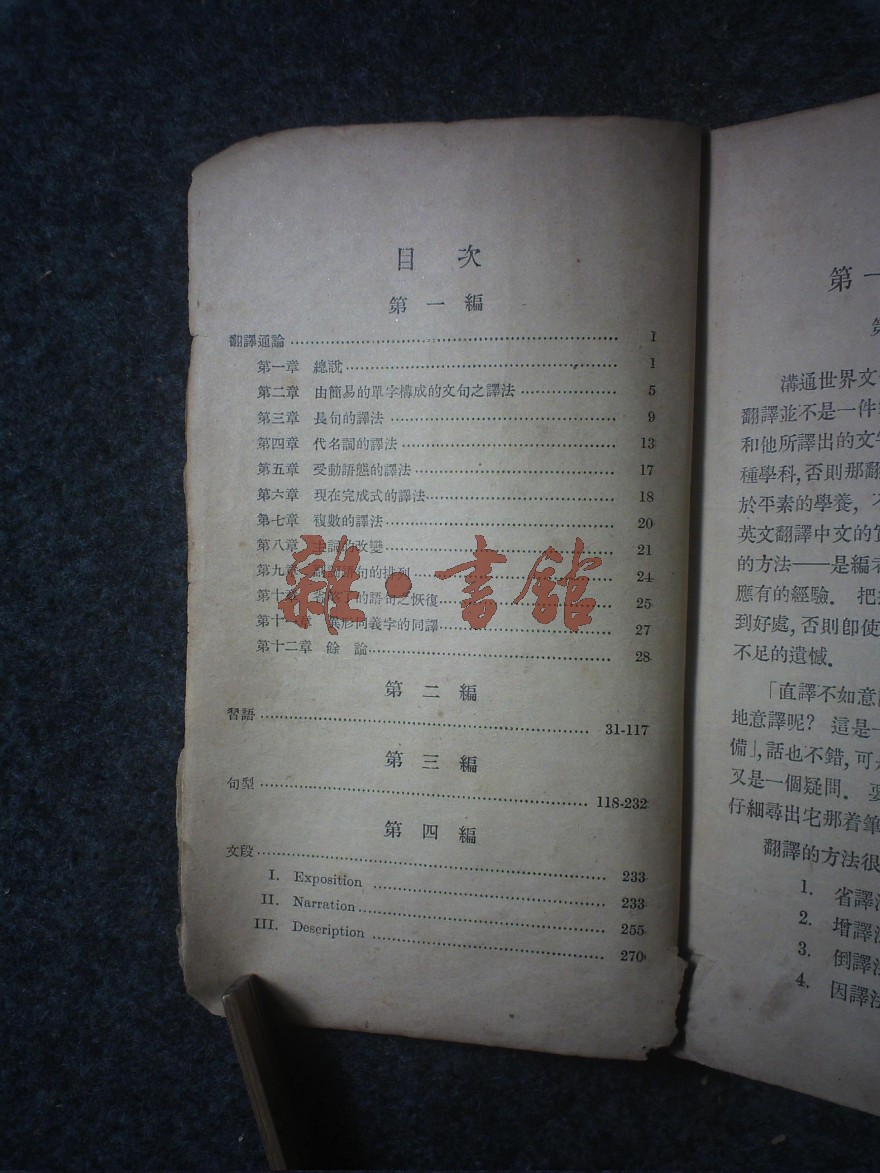 目 次
第 一 編
翻譯通論 1
第一章 總說 1
第二章 由簡易的單字構成的文句之譯法 5
第三章 長句的譯法 9
第四章 代名詞的譯法 13
第五章 受動語態的譯法 17
第六章 現在完成式的譯法 18
第七章 複數的譯法 20
第八章 主詞的改變 21
第九章 語句的排列 24
第十章 的語句之恢復 25
第十一章 異形同義字的同譯 27
第十二章 餘論 28
第 二 編
習語 31-117
第 三 編
句型 118-232
第 四 編
文段 233
I. Exposition 233
II. Narration 255
III. Description 270
雜·書館
第一
第
溝通世界文
翻譯並不是一件
和他所譯出的文
種學科,否則那翻
於平素的學養,
英文翻譯中文的
的方法——是編
應有的經驗. 把
到好處,否則即使
不足的遺憾.
「直譯不如意
地意譯呢? 這是一
備」,話也不錯,可
又是一個疑問.
仔細尋出宅那着筆
翻譯的方法很
1. 省譯法
2. 增譯法
3. 倒譯法
4. 因譯法